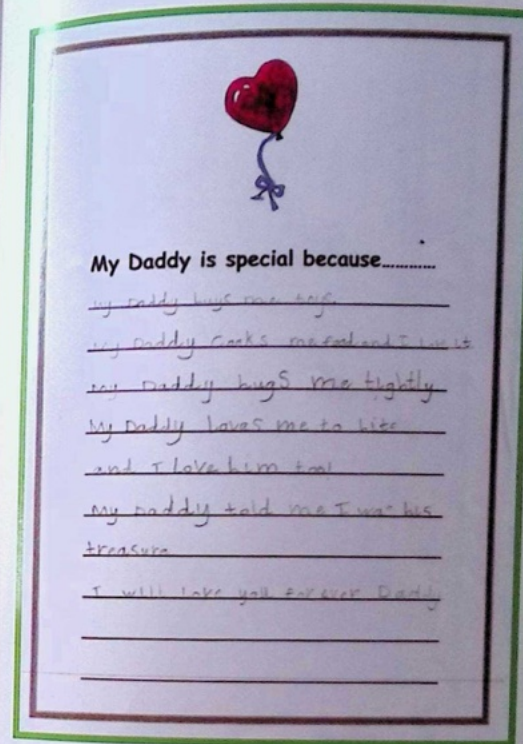 My Daddy is special because...........
my Daddy buys me toys.
my Daddy cooks me food and I like it
my Daddy hugs me tightly
My Daddy loves me to
and I love him too!
My Daddy told me I was his
treasure
I will love you forever Daddy